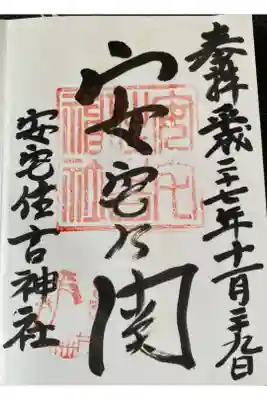 奉拝平成二十七年十一月二十九日
安宅乃関
安宅住吉神社